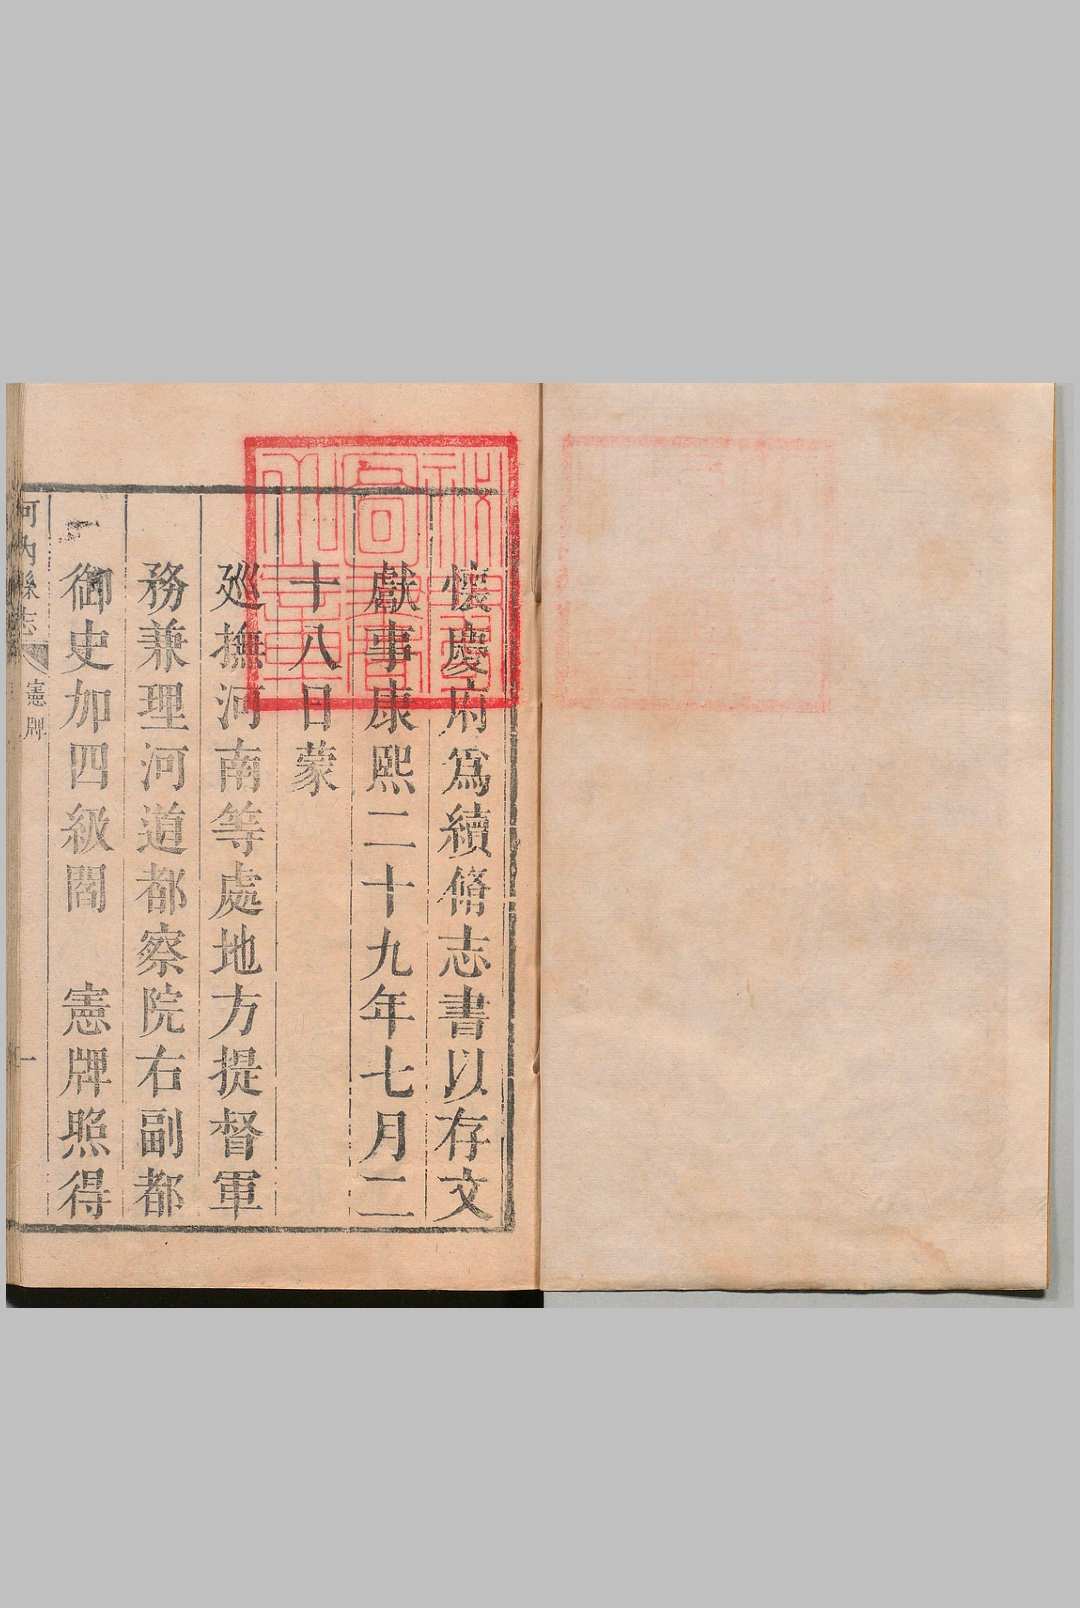 懷慶府爲續脩志書以存文
獻事康熙二十九年七月二
十八日蒙
廵撫河南等處地方提督軍
務兼理河道都察院右副都
御史加四級閻　憲牌照得
河內縣志　憲牌　一